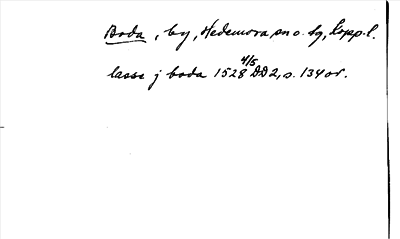 Boda, by, Hedemora sn o. sg, Kopp. l.
lasse j boda 1528 4/5 DD 2, s. 134 or.